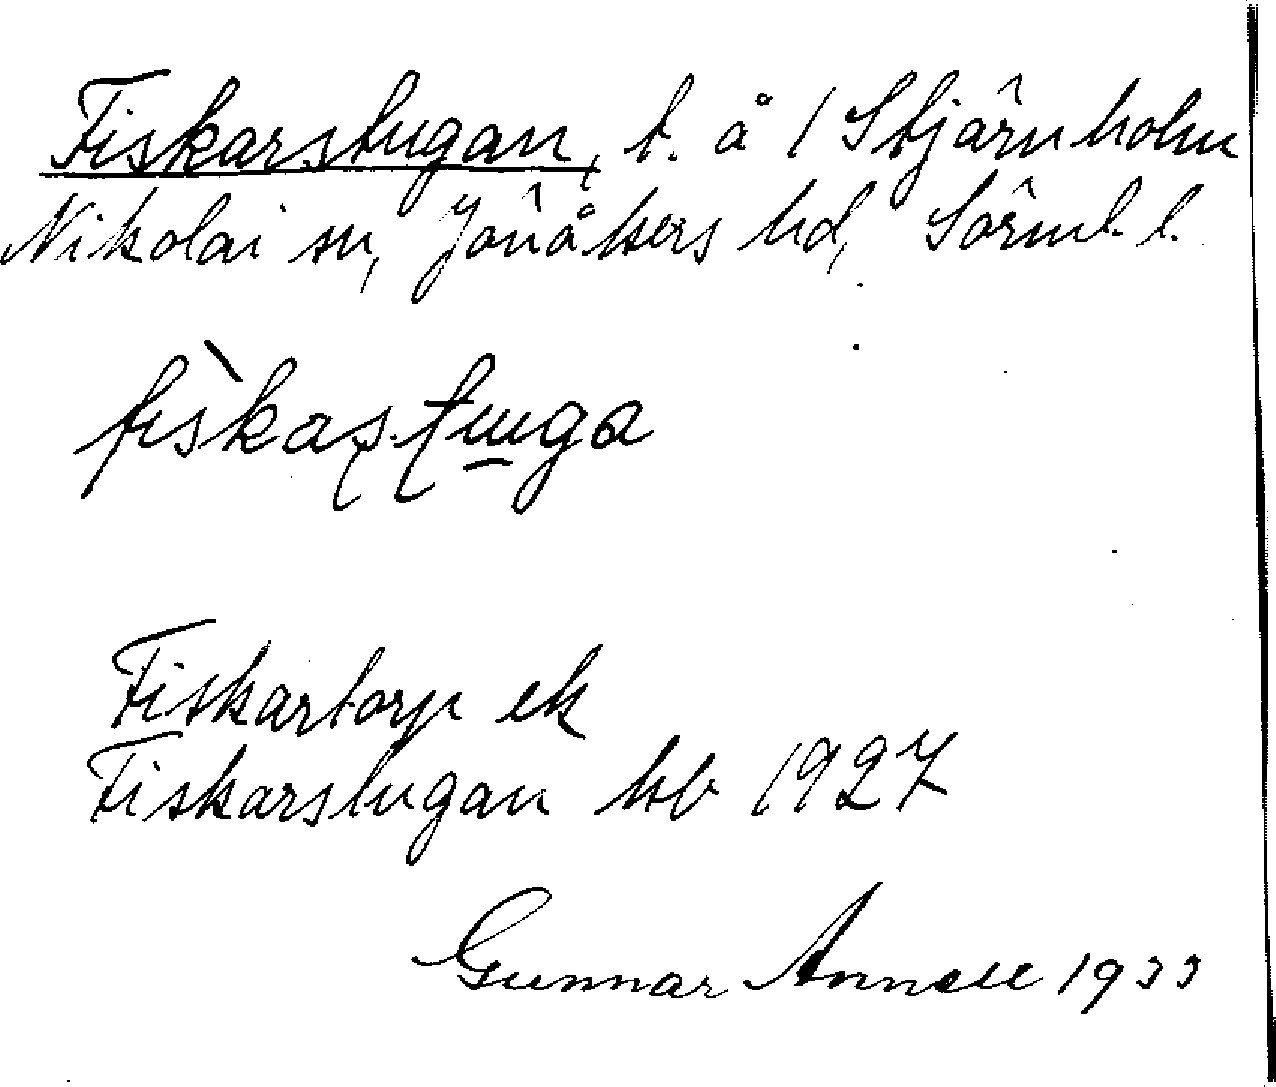 Fiskarstugan, t. å 1 Stjärnholm
Nikolai sn, Jönåkers hd, Sörml. l.
fiskaʂʈuga
Fiskartorp ek
Fiskarstugan kb 1927
Gunnar Annell 1933